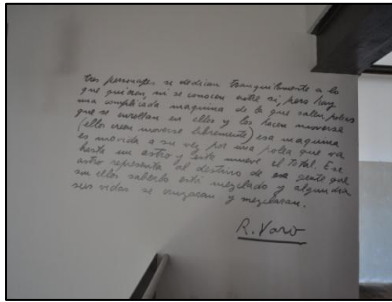 Tres personajes se dedican tranquilamente a lo
que quieren, ni se conocen entre sí, pero hay
una complicada máquina de la que salen poleas
que se enrollan en ellos y los hacen moverse
(ellos creen moverse libremente) esa máquina
es movida a su vez por una polea que va
hasta un astro y éste mueve el total. Ese
astro representa el destino de esa gente que
sin ellos saberlo está mezclado y algún día
sus vidas se cruzaran y mezclaran.
R. Varo